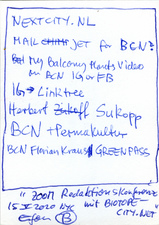 NEXTCITY.NL
MAIL JET for BCN?
My Balcony Hands Video
on BCN IG or FB
IG → Linktree
Herbert Sukopp
BCN + Permakultur
BCN Florian Kraus GREENPASS
"ZOOM Redaktionskonferenz
15 X 2020 NYC mit BIOTOPE-
CITY.NET"
B